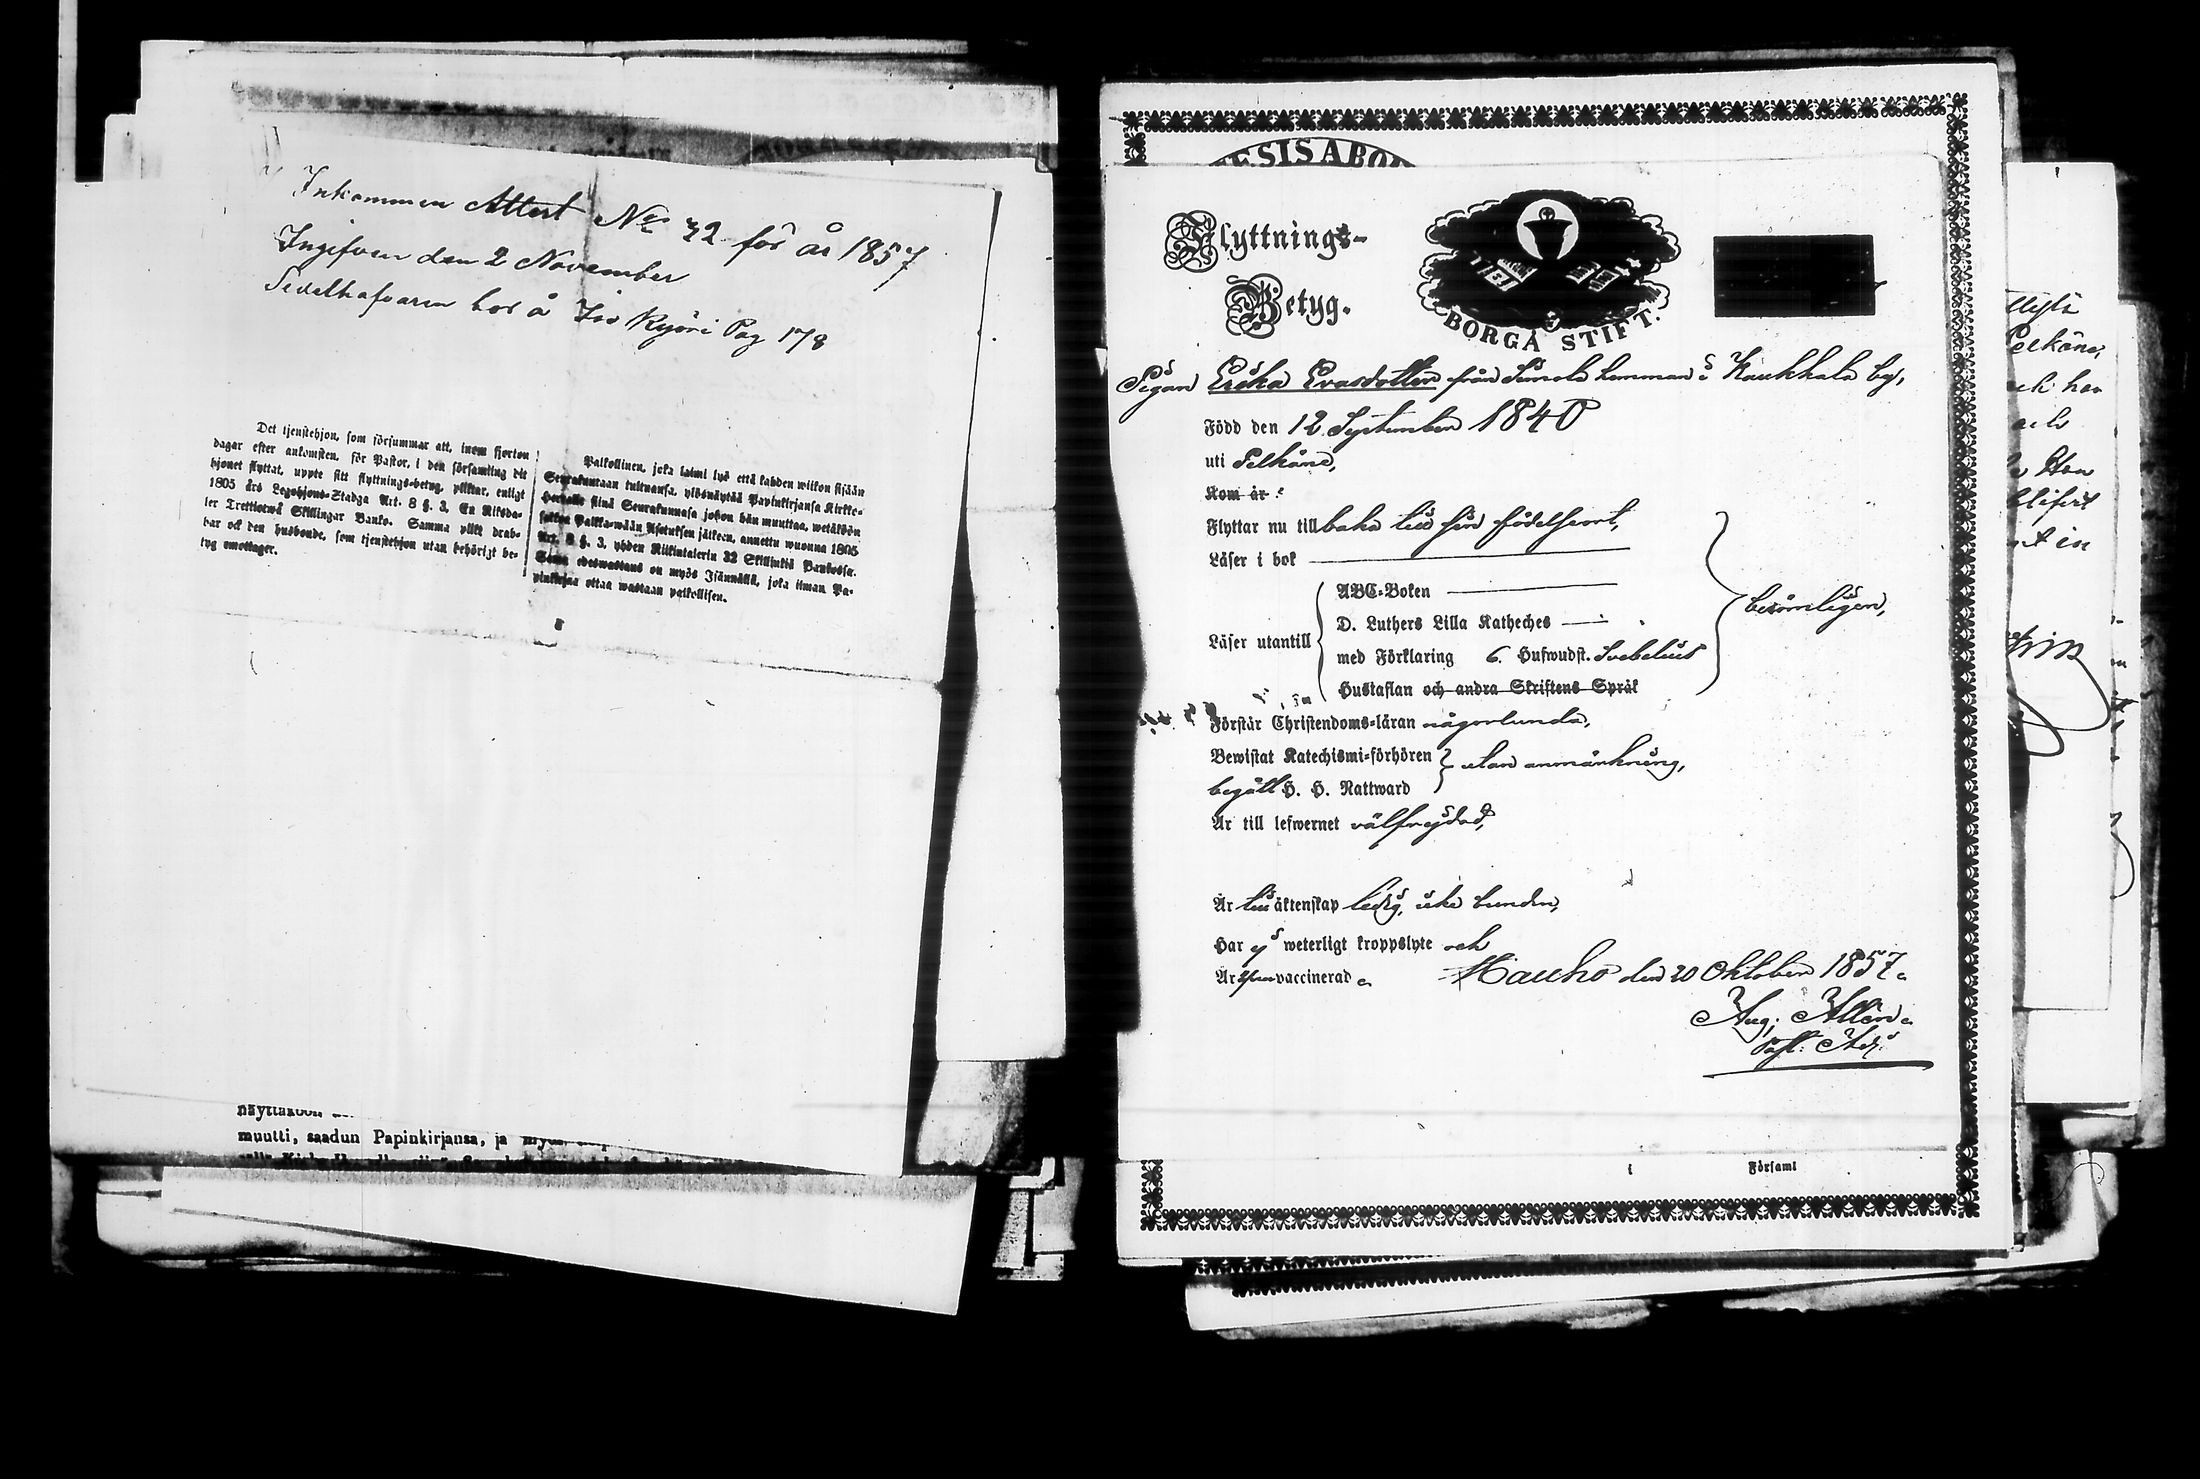 Inkommen Attest No 32 för år 1857
Ingifven den 2 November
hos å Iso Kyöri Pag 178
Det tjenstehjon, som försummar att, inom fjorton
dagar efter ankomsten, för Pastor, i den församling dit
hjonet flyttat, uppte sitt flyttnings-betyg, pliktar, enligt
1805 års Legohjons-Stadga Art. 8 §. 3, En Riksda-
ler Trettiotwå Skillingar Banko. Samma plikt drab-
bar ock den husbonde, som tjenstehjon utan behörigt be-
tyg emottager.
Palkollinen, joka laimi lyö että kahden wiikon sisään
Seurakuntaan tultuansa, ylösnäyttää Papinkirjansa Kirkko-
herralle siinä Seurakunnasa johon hän muuttaa, wetäköön
sakkoa Palkka-wään Asetuksen jälkeen, annettu wuonna 1805
Art. 8 §. 3, yhden Riikintalerin 32 Skillinkiä Pankossa.
Sama edeswastaus on myös Isännällä, joka ilman Pa-
pinkirjaa ottaa wastaan palkollisen.
muutti, saadun Papinkirjansa, ja
ESIS ABO
Flyttnings-
Betyg.
BORGÅ STIFT.
Pigan Erika Evasdotter från Simola hemman i Kaukkala by,
Född den 12 September 1840
uti Pelkäne,
Kom år
Flyttar nu till baka till sin födelseort,
Läser i bok
ABC-Boken
Läser utantill
D. Luthers Lilla Katheches
med Förklaring 6. Hufwudst. Svebelius
berömligen,
Hustaflan och andra Skriftens Språk
Förstår Christendoms-läran någorlunda,
Bewistat Katechismi-förhören
utan anmärkning,
begått H. H. Nattward
Är till lefwernet välfrejdad,
Är till äktenskap ledig, icke bunden,
Har ej weterligt kroppslyte och
Är vaccinerad.
Hauho den 20 Oktober 1857.
Aug. Allén
Past. Adj.
i Församl
Pelkäne,